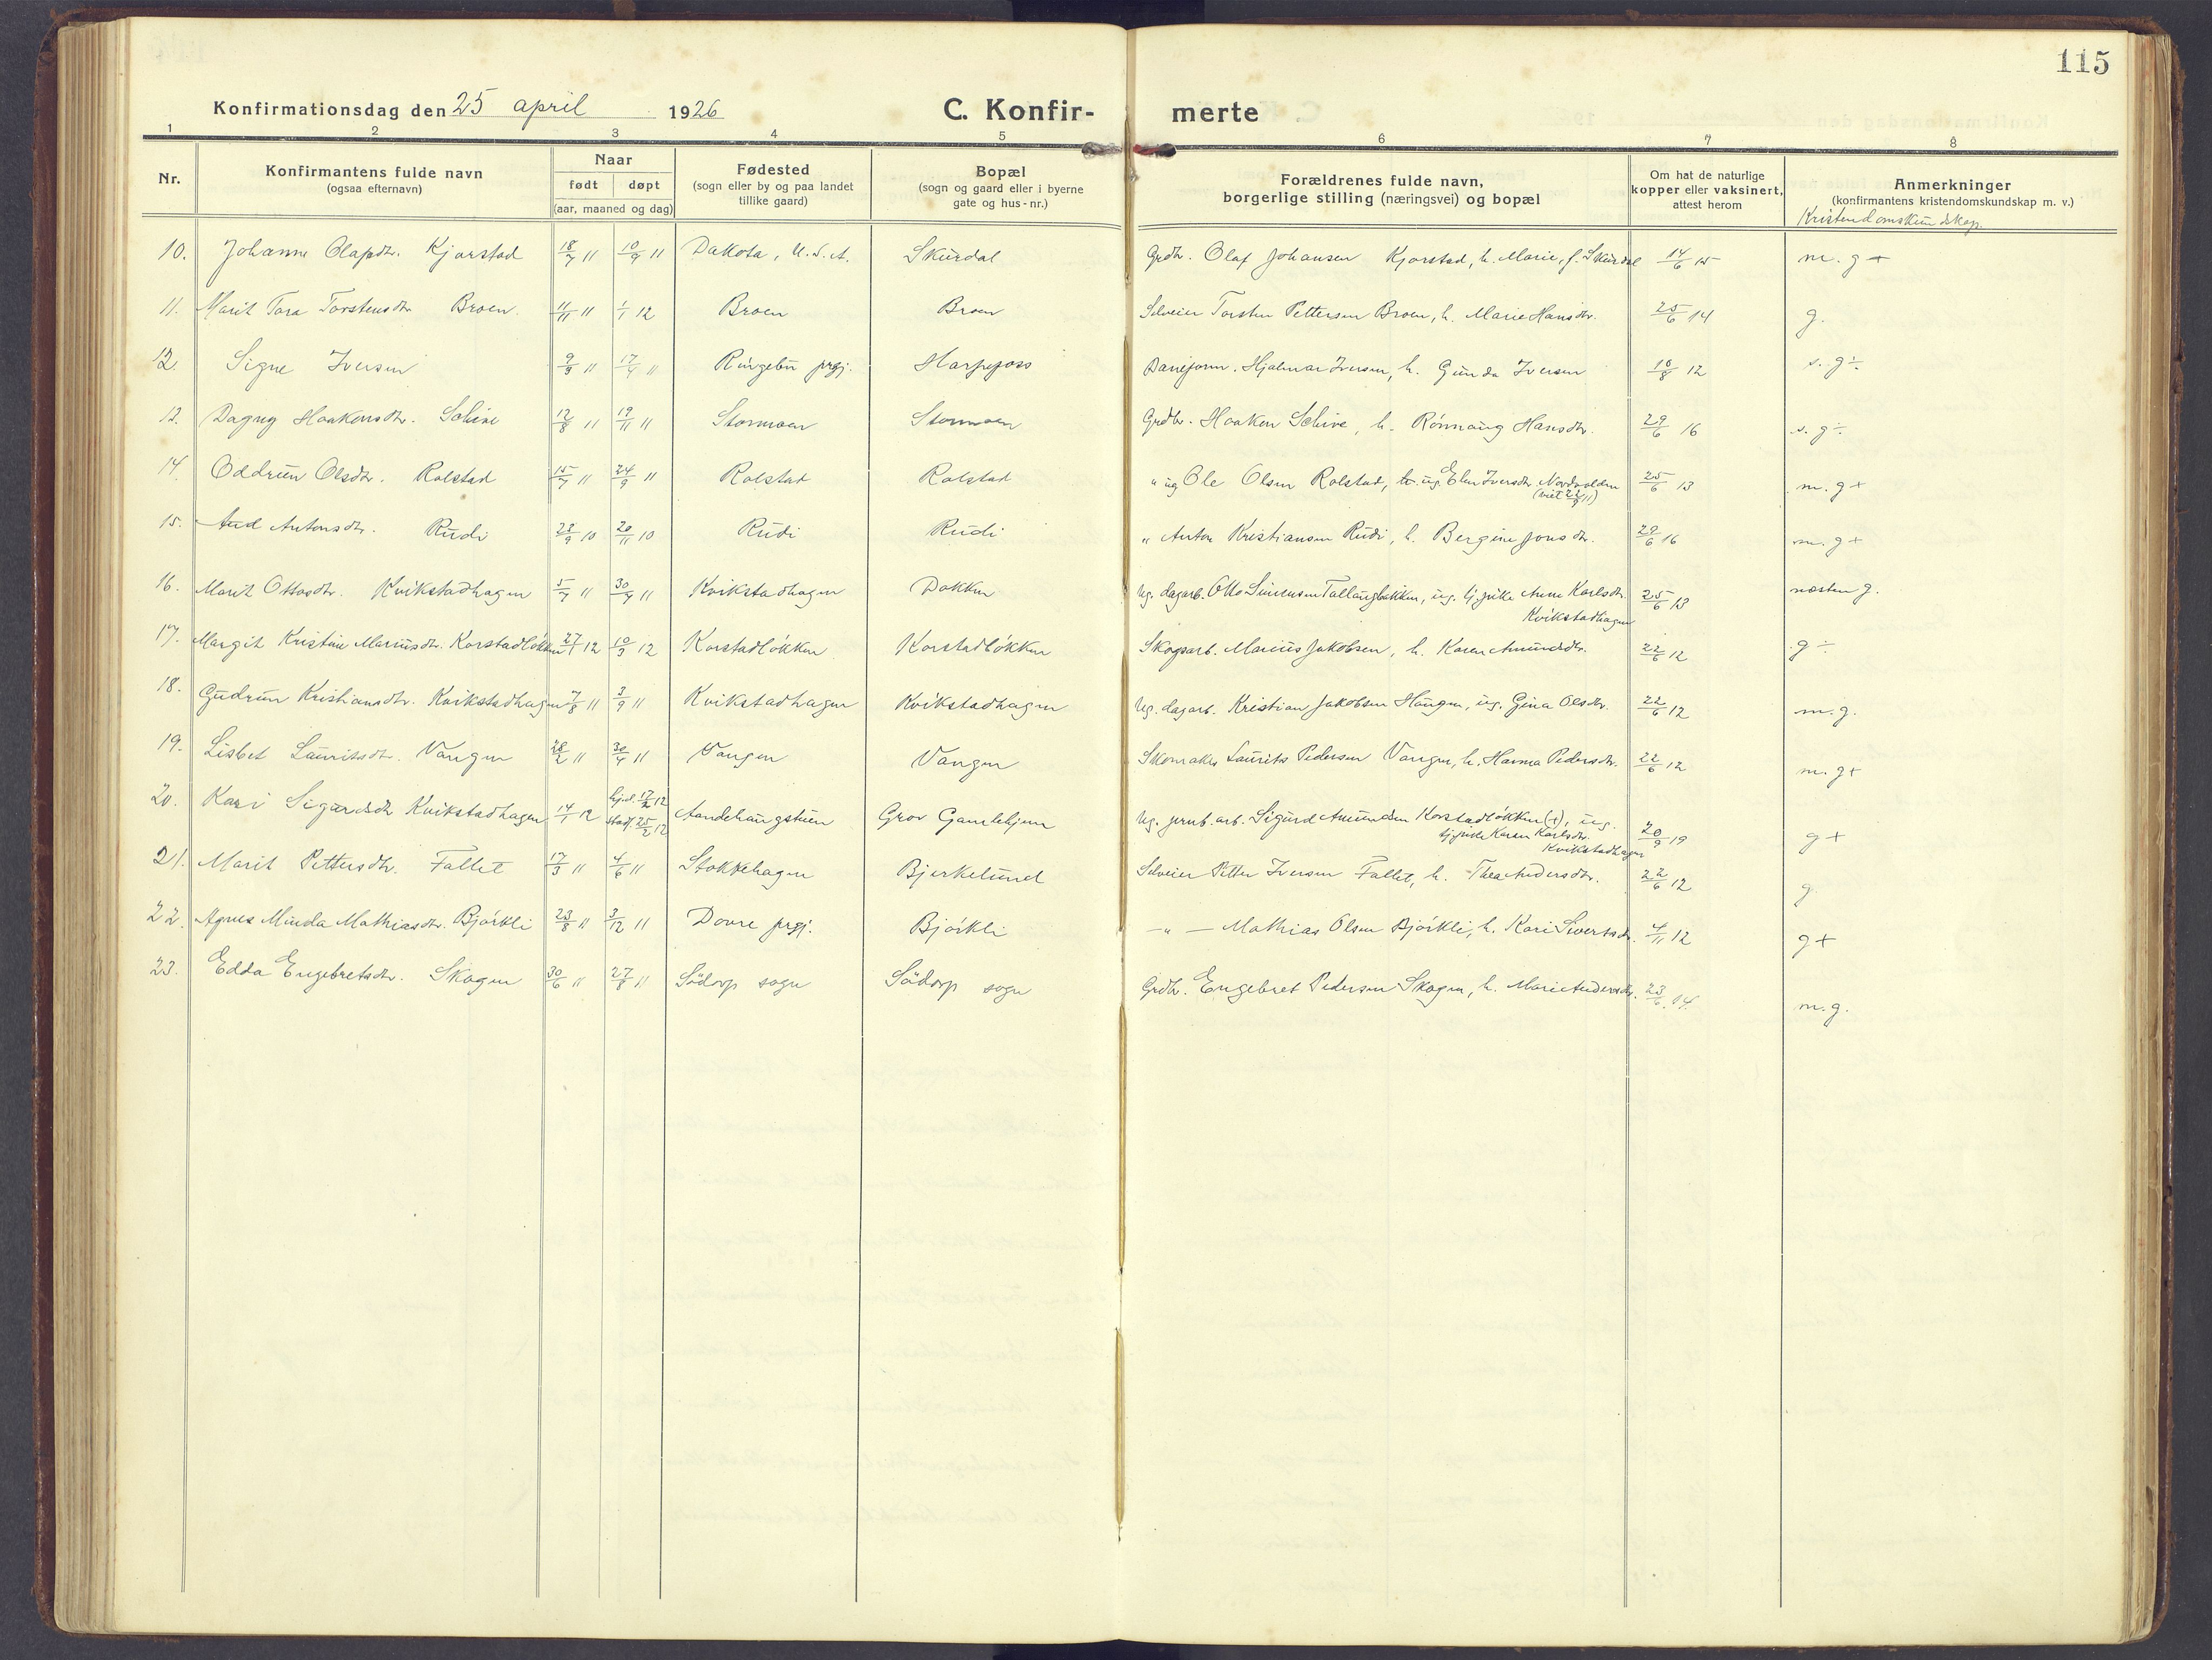 115
Konfirmationsdag den 25 april 1926
C. Konfir- merte
1 2 3 4 5 6 7 8
Nr.
Konfirmantens fulde navn
(ogsaa efternavn)
Naar
født døpt
(aar, maaned og dag)
Fødested
(sogn eller by og paa landet
tillike gaard)
Bopæl
(sogn og gaard eller i byerne
gate og hus-nr.)
Forældrenes fulde navn,
borgerlige stilling (næringsvei) og bopæl
Om hat de naturlige
kopper eller vaksinert,
attest herom
Anmerkninger
(konfirmantens kristendomskundskap m. v.)
Kristendomskundskap.
10. Johanne Olafsdtr. Kjorstad 18/7 11 10/9 11 Dakota, U.S.A. Skurdal Grdbr. Olaf Johansen Kjorstad, h. Marie, f. Skurdal 14/6 15 m. g +
11. Marit Tora Torstensdtr. Broen. 11/11 11 1/1 12 Broen Broen Selveier Torsten Pettersen Broen, h. Marie Hansdtr. 25/6 14 g.
12. Signe Iversen 9/3 11 17/4 11 Ringebu prgj. Harpefoss Baneform. Hjalmar Iversen, h. Gunda Iversen 10/8 12 s. g ÷
13. Dagny Haakensdtr. Schive 12/8 11 19/11 11 Stormoen Stormoen Grdbr. Haaken Schive, h. Rønnaug Hansdtr. 29/6 16 s. g ÷
14. Oddrun Olsdtr. Rolstad 15/7 11 24/9 11 Rolstad Rolstad " ug Ole Olsen Rolstad, ug. Elen Iversdtr. Nordvolden 25/6 13 m. g +
15. Aud Antonsdtr. Rudi 28/9 10 20/11 10 Rudi Rudi " Anton Kristiansen Rudi, h. Bergine Jonsdtr. 29/6 16 m. g +
16. Marit Ottosdtr. Kvikstadhagen 5/7 11 30/9 11 Kvikstadhagen Bakken Ug. dagarb. Otto Simensen Tallaugbakken, ug. tj.pike Anne Karlsdtr. 25/6 13 næsten g.
Kvikstadhagen
17. Margit Kristine Mariusdtr. Korstadløkken 27/1 12 10/3 12 Korstadløkken Korstadløkken Skogsarb. Marius Jakobsen, h. Karen Amundsdtr. 22/6 12 g ÷
18. Gudrun Kristiansdtr. Kvikstadhagen 7/8 11 3/9 11 Kvikstadhagen Kvikstadhagen Ug. dagarb. Kristian Jakobsen Haugen, ug. Gina Olsdtr. 22/6 12 m. g.
19. Lisbet Lauritsdtr. Vangen 28/2 11 30/4 11 Vangen Vangen Skomaker Laurits Pedersen Vangen, h. Hanna Pedersdtr. 22/6 12 m. g +
20. Kari Sigurdsdtr. Kvikstadhagen 14/1 12 hj.d. 17/2 12 Aandehaugstuen Grov Gamlehjem Ug. jernb.arb. Sigurd Amundsen Korstadløkken (+), ug. 20/9 19 g +
stadf. 25/2 12 tj.pike Karen Karlsdtr.
Kvikstadhagen
21. Marit Pettersdtr. Fallet 17/3 11 4/6 11 Stokkehagen Bjerkelund Selveier Petter Iversen Fallet, h. Thea Andersdtr. 22/6 12 g.
22. Agnes Minda Mathiasdtr. Bjørkli 23/8 11 3/12 11 Dovre prgj. Bjørkli — " — Mathias Olsen Bjørkli, h. Kari Sivertsdtr. 4/11 12 g +
23. Edda Engebretsdtr. Skogen 30/6 11 27/8 11 Sødorp sogn Sødorp sogn Grdbr. Engebret Pedersen Skogen, h. Marie Andersdtr. 23/6 14. m. g.